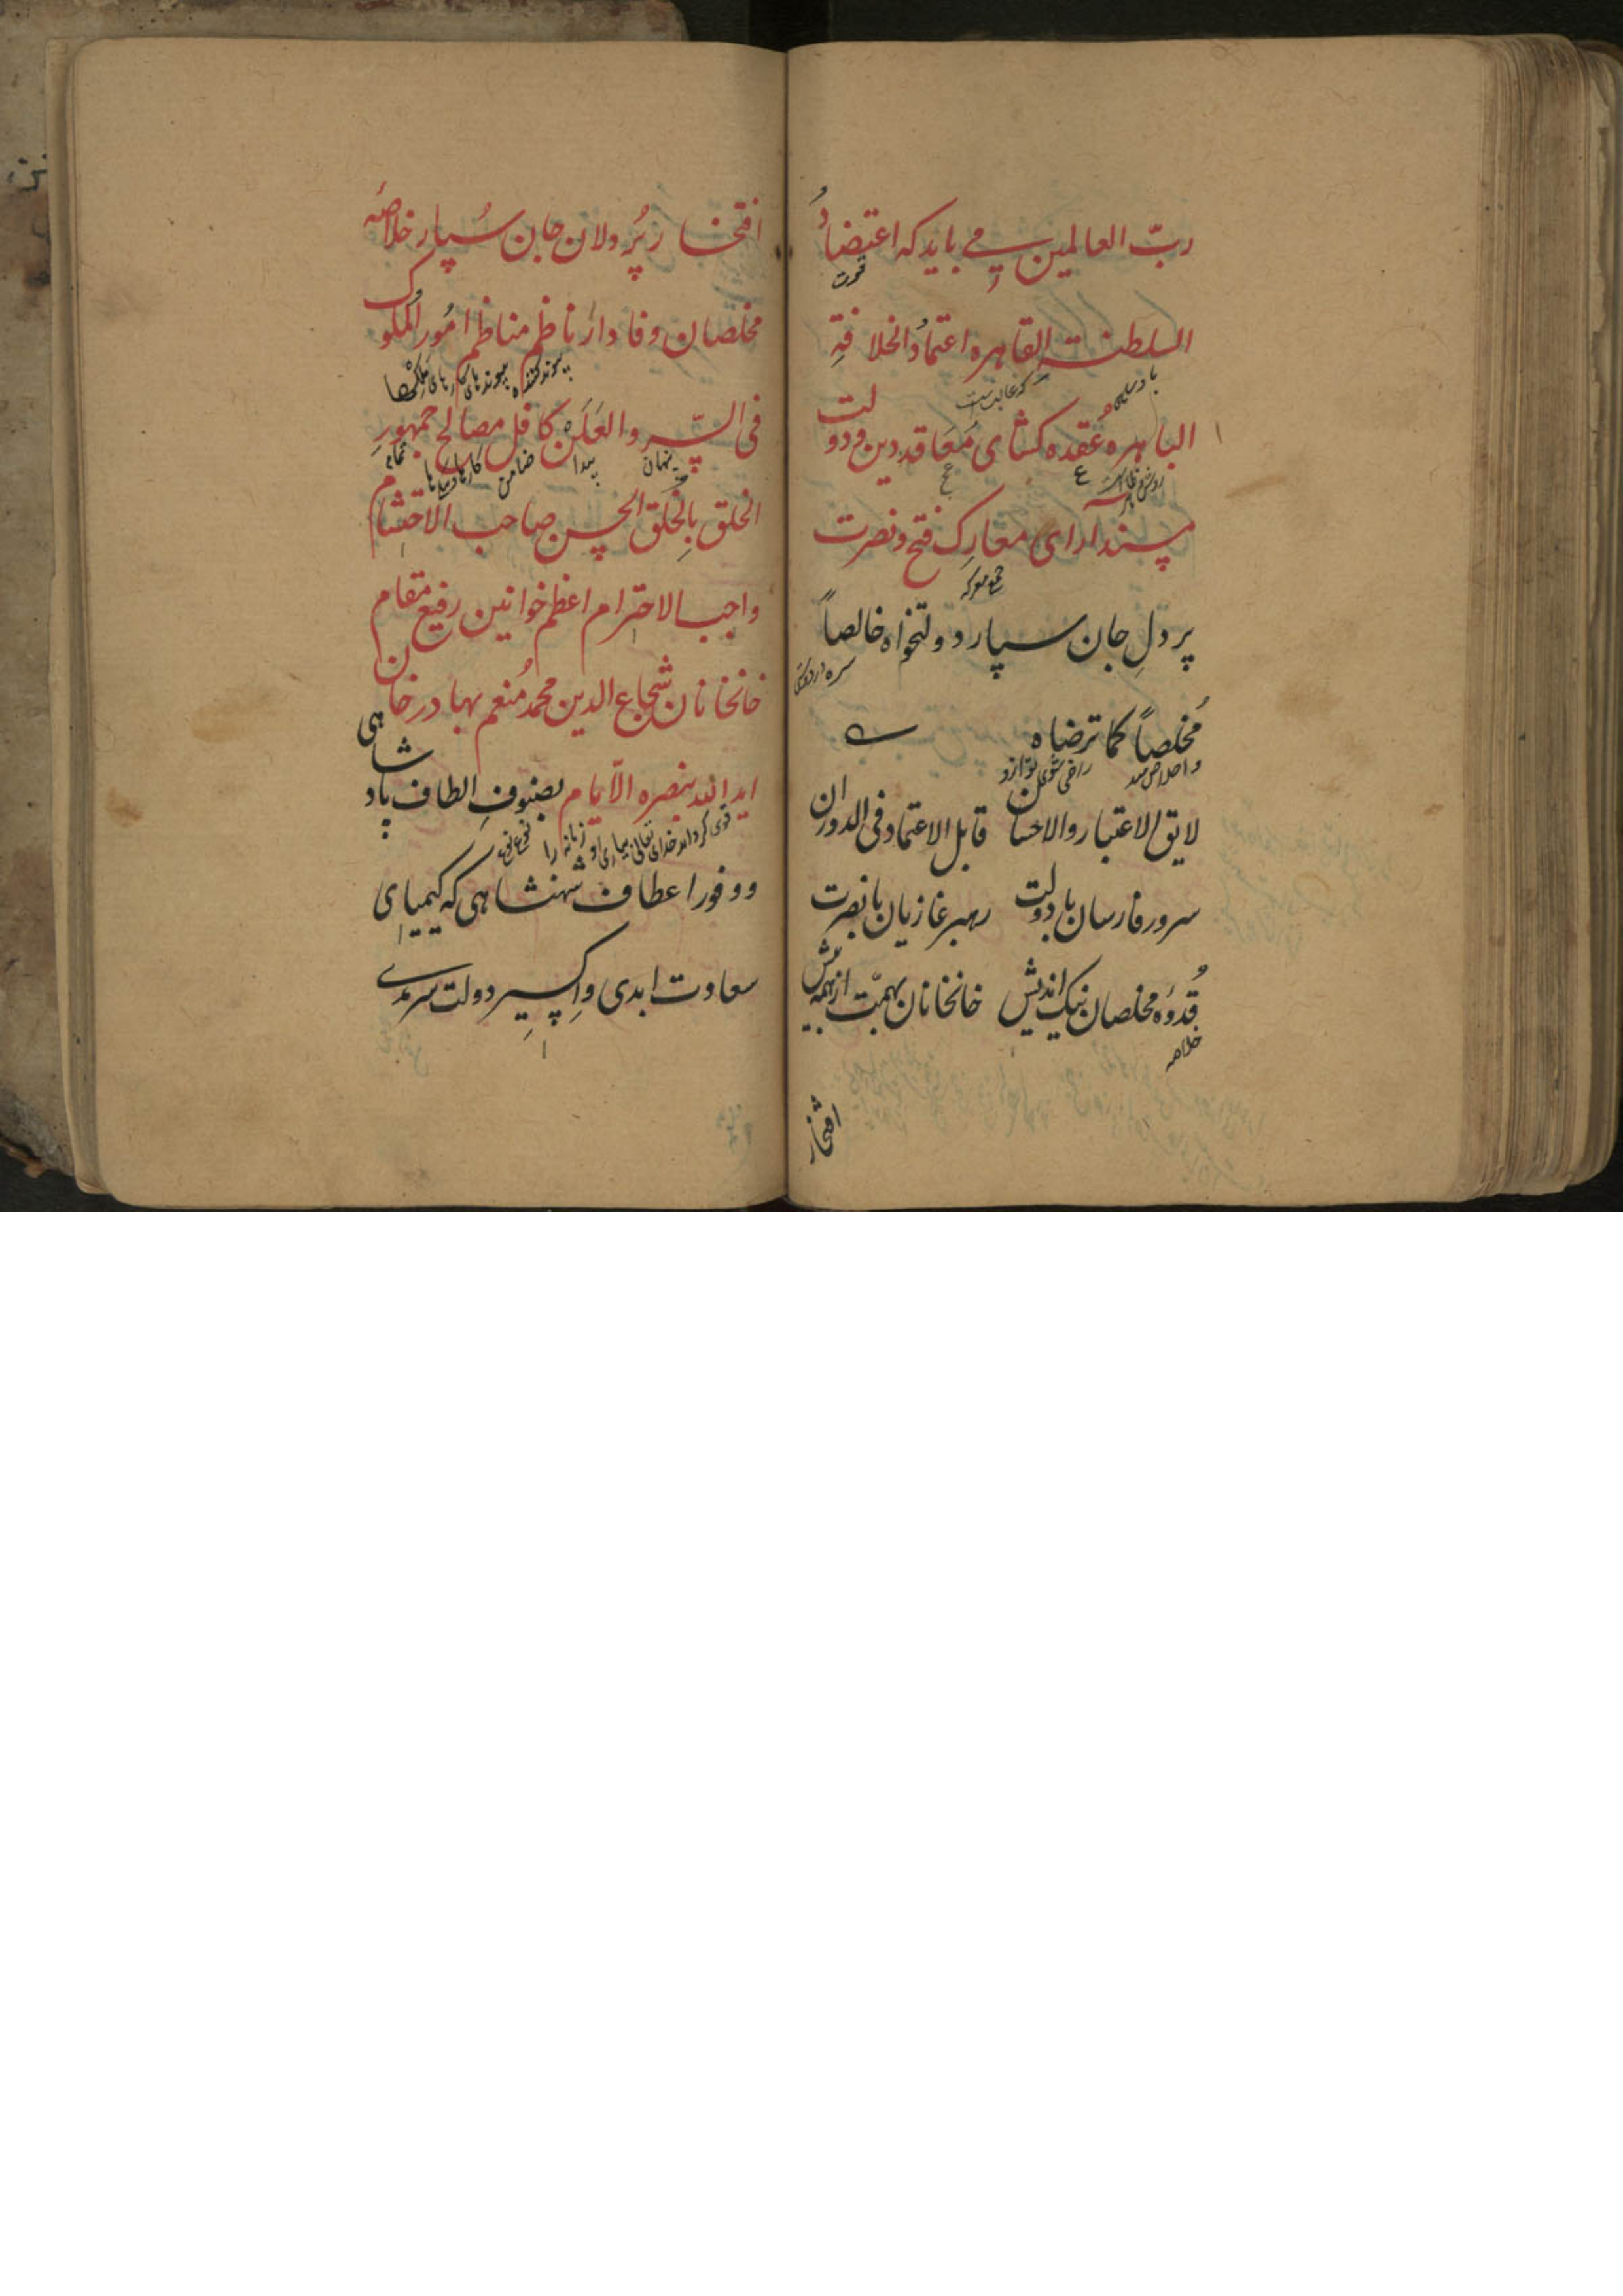 ربّ العالمین می باید که اعتضادُ
قوت
السلطنتِ القاهره اعتمادُ الخلافةِ
که غالبست
الباهره عُقده کشای مَعَاقد دین و دولت
مسند آرای معارِک فتح و نصرت
جمع معرکه
پر دلِ جان سپار دولتخواه خالصاً
مُخلصاً کما ترضاه
راضی شوی تو ازو
لایق الاعتبار والاحسان قابل الاعتماد فی الدوران
سرور فارسان با دولت رهبر غازیان با نصرت
قُدوَهٔ مخلصان نیک اندیش خانخانان بهمّت از همه بیش
خلاصه
افتخار
افتخار پُردلان جان سُپار خلاصهٔ
مخلصان وفادار ناظم مناظم امُور المُلوک
پیوند کننده پیوندهای کارهای
فی السّر والعَلَن کافل مصالح جمهورِ
پنهان پیدا ضامن تمام
الخلق بِالخُلق الحسن صاحب الاحتشام
واجب الاحترام اعظم خوانین رفیع مقام
خانخانان شجاع الدین محمد مُنعم بهادر خان
اید الله بنصره الاّیام بصنوفِ الطاف پادشاهی
قوی کرداند خدای تعالی بیاری او زمانه را
و وفور اعطاف شهنشاهی که کیمیای
سعادت ابدی و اکسیرِ دولت سرمدی